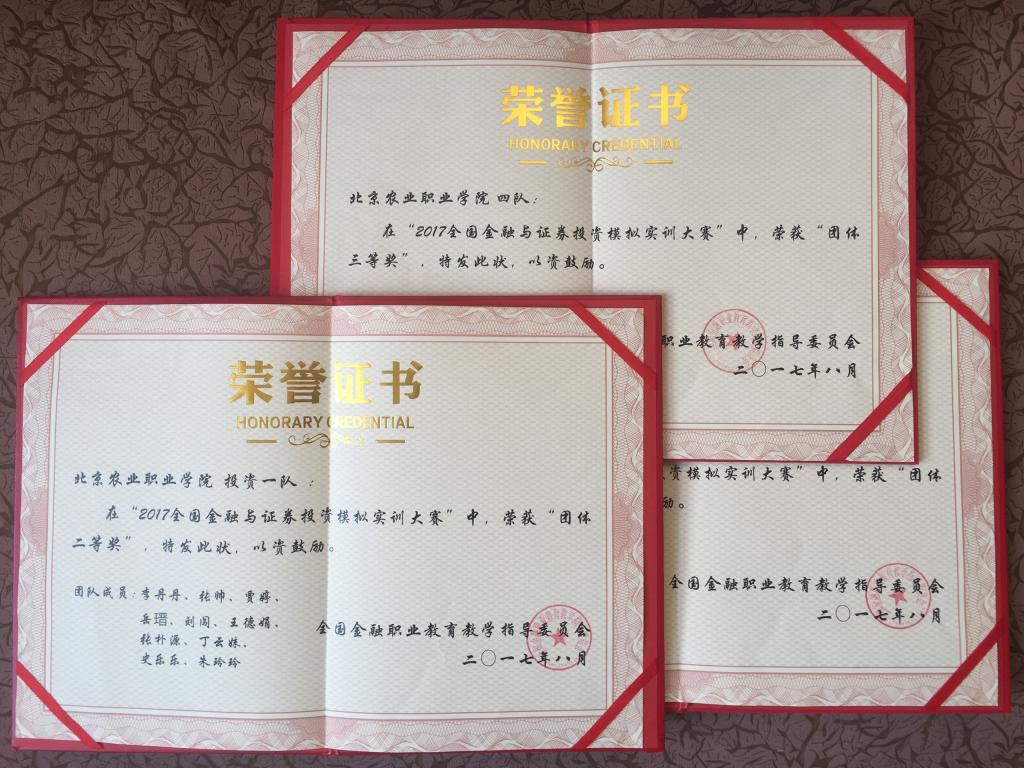 荣誉证书
HONORARY CREDENTIAL
北京农业职业学院 四队：
在“2017全国金融与证券投资模拟实训大赛”中，荣获“团体
三等奖”，特发此状，以资鼓励。
职业教育教学指导委员会
二〇一七年八月
荣誉证书
HONORARY CREDENTIAL
北京农业职业学院 投资一队：
在“2017全国金融与证券投资模拟实训大赛”中，荣获“团体
二等奖”，特发此状，以资鼓励。
团队成员：李丹丹、张帅、贾婷、
岳瑨、刘闯、王德娟、
张朴源、丁云姝、
史乐乐、朱玲玲
全国金融职业教育教学指导委员会
二〇一七年八月
资模拟实训大赛”中，荣获“团体
励。
全国金融职业教育教学指导委员会
二〇一七年八月